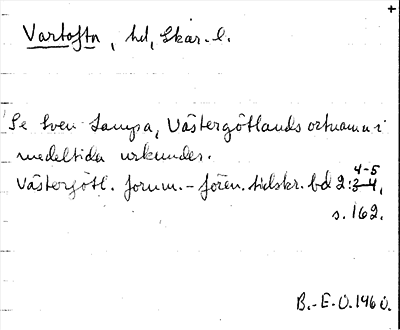 +
Vartofta, hd, Skar. l.
Se Sven Lampa, Västergötlands ortnamn i
medeltida urkunder.
4-5
Västergötl. fornm.-fören. tidskr. bd 2:3-4,
s. 162.
B.-E.O. 1960.